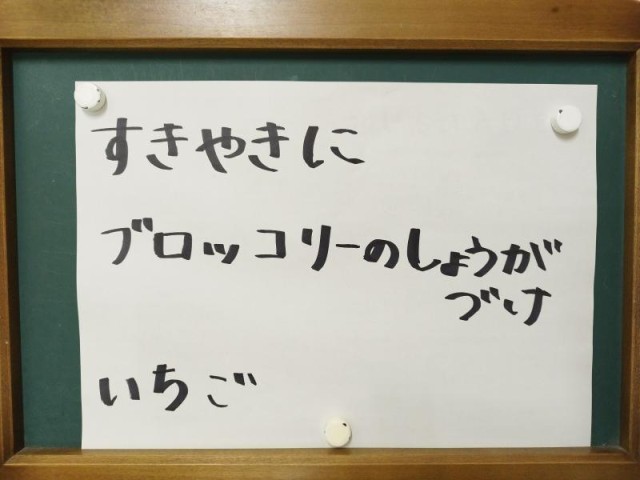 すきやきに
ブロッコリーのしょうが
づけ
いちご